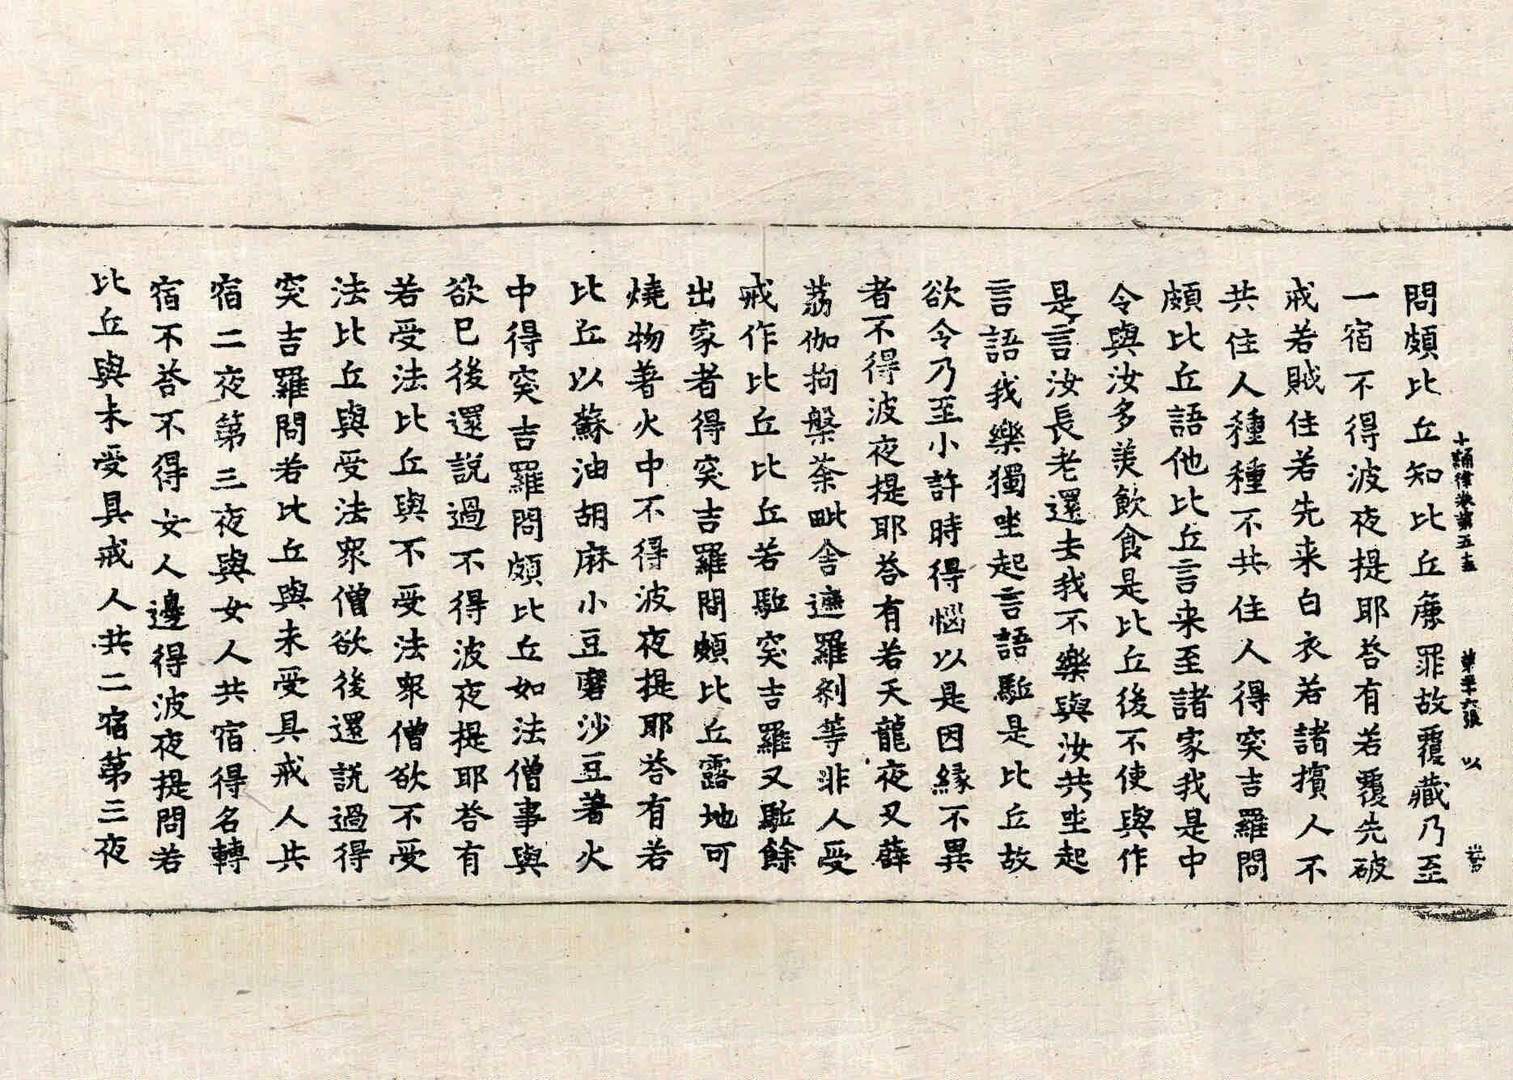 十誦律卷第五十三 第十六張 以
問頗比丘知比丘麁罪故覆藏乃至
一宿不得波夜提耶荅有若覆先破
戒若賊住若先来白衣若諸擯人不
共住人種種不共住人得突吉羅問
頗比丘語他比丘言来至諸家我是中
令與汝多美飲食是比丘後不使與作
是言汝長老還去我不樂與汝共坐起
言語我樂獨坐起言語駈是比丘故
欲令乃至小許時得惱以是因緣不異
者不得波夜提耶荅有若天龍夜叉薜
荔伽拘槃荼毗舍遮羅剎等非人受
戒作比丘比丘若駈突吉羅又駈餘
出家者得突吉羅問頗比丘露地可
燒物著火中不得波夜提耶荅有若
比丘以蘇油胡麻小豆磨沙豆著火
中得突吉羅問頗比丘如法僧事與
欲已後還說過不得波夜提耶荅有
若受法比丘與不受法衆僧欲不受
法比丘與受法衆僧欲後還說過得
突吉羅問若比丘與未受具戒人共
宿二夜第三夜與女人共宿得名轉
宿不荅不得女人邊得波夜提問若
比丘與未受具戒人共二宿第三夜